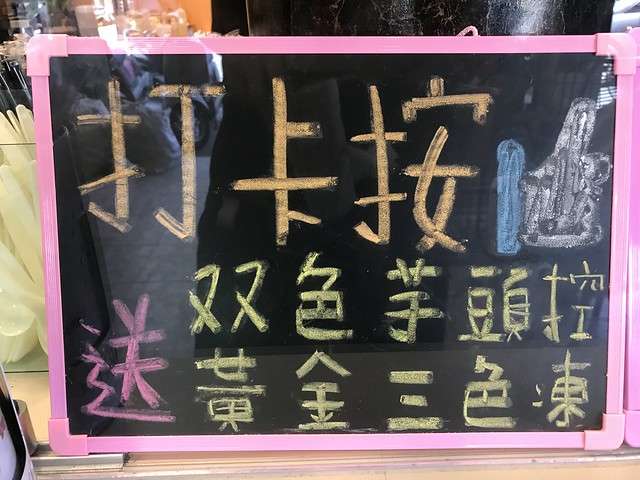 打卡按
送
双色芋頭控
黃金三色凍